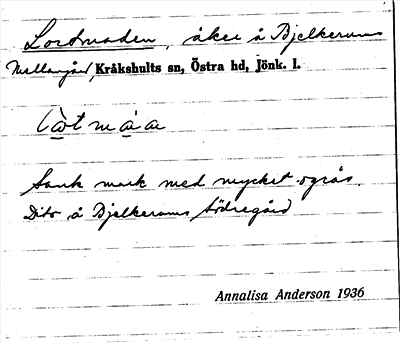 Lortmaden, åker å Bjelkerums
Mellangård, Kråkshults sn, Östra hd, Jönk. l.
Sank mark med mycket ogräs.
Dito å Bjelkerums Södregård
Annalisa Anderson 1936